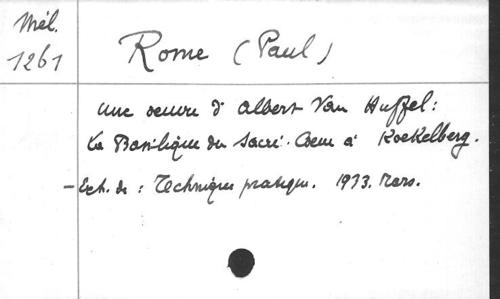 Mél.
1261
Rome (Paul)
une oeuvre d'Albert Van Huffel:
La Basilique du Sacré-Coeur à Koekelberg.
- Ext. de : Technique pratique. 1933. Mars.